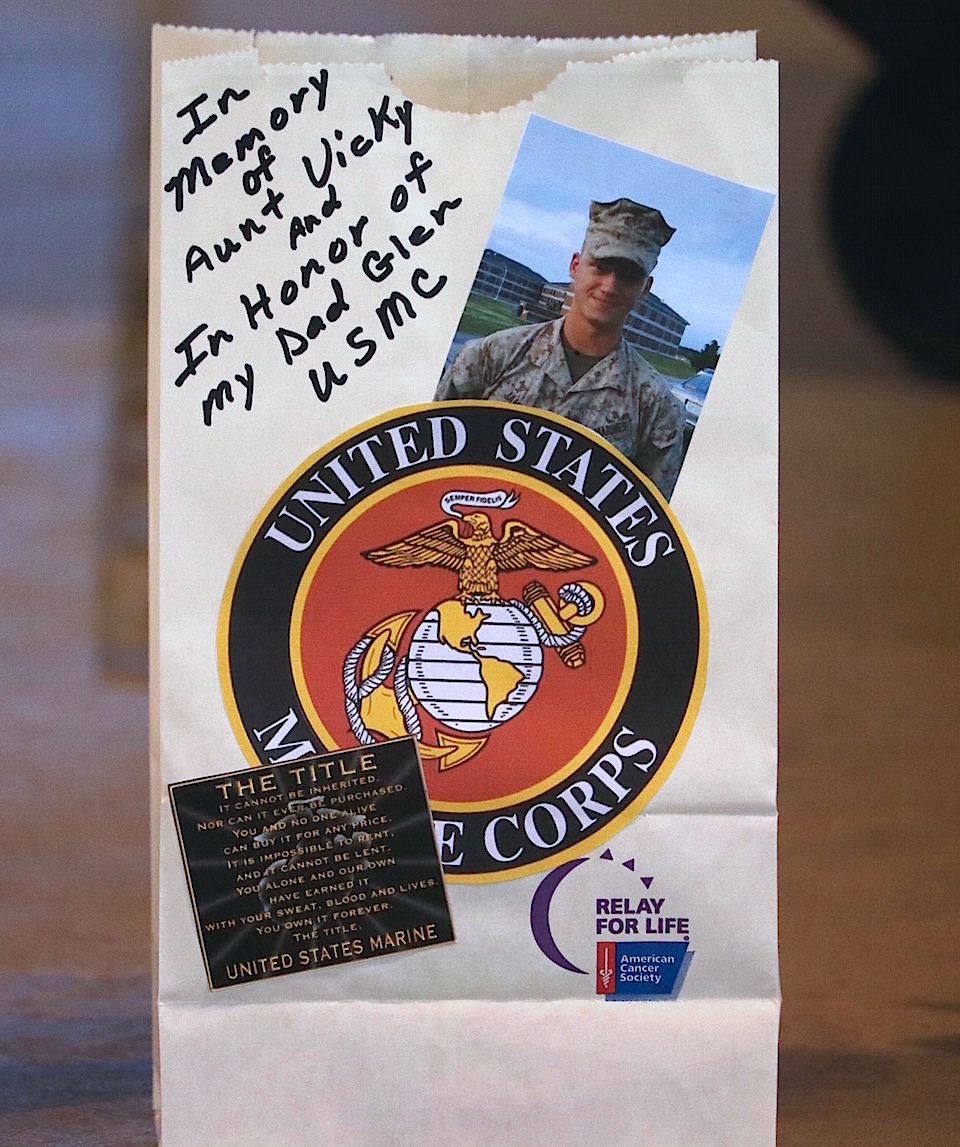 In
Memory
of
Aunt Vicky
And
In Honor of
my Dad Glen
USMC
UNITED STATES
SEMPER FIDELIS
M E CORPS
THE TITLE
IT CANNOT BE INHERITED,
NOR CAN IT EVER BE PURCHASED.
YOU AND NO ONE ALIVE
CAN BUY IT FOR ANY PRICE.
IT IS IMPOSSIBLE TO RENT,
AND IT CANNOT BE LENT.
YOU ALONE AND OUR OWN
HAVE EARNED IT
WITH YOUR SWEAT, BLOOD AND LIVES.
YOU OWN IT FOREVER.
THE TITLE,
UNITED STATES MARINE
RELAY
FOR LIFE®
American
Cancer
Society